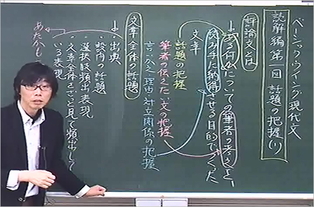 ベーシックウイング現代文
読解編 第一回 話題の把握(1)
評論文とは
ある何かについての筆者の考えを
読み手に納得させる目的でつくった
文章
話題の把握
筆者の伝えたい文の把握
言いかえ・理由・対立関係の把握
文章全体の話題
出典
設問の話題
選択肢頻出表現
文章全体をざっと見て頻出して
いる表現